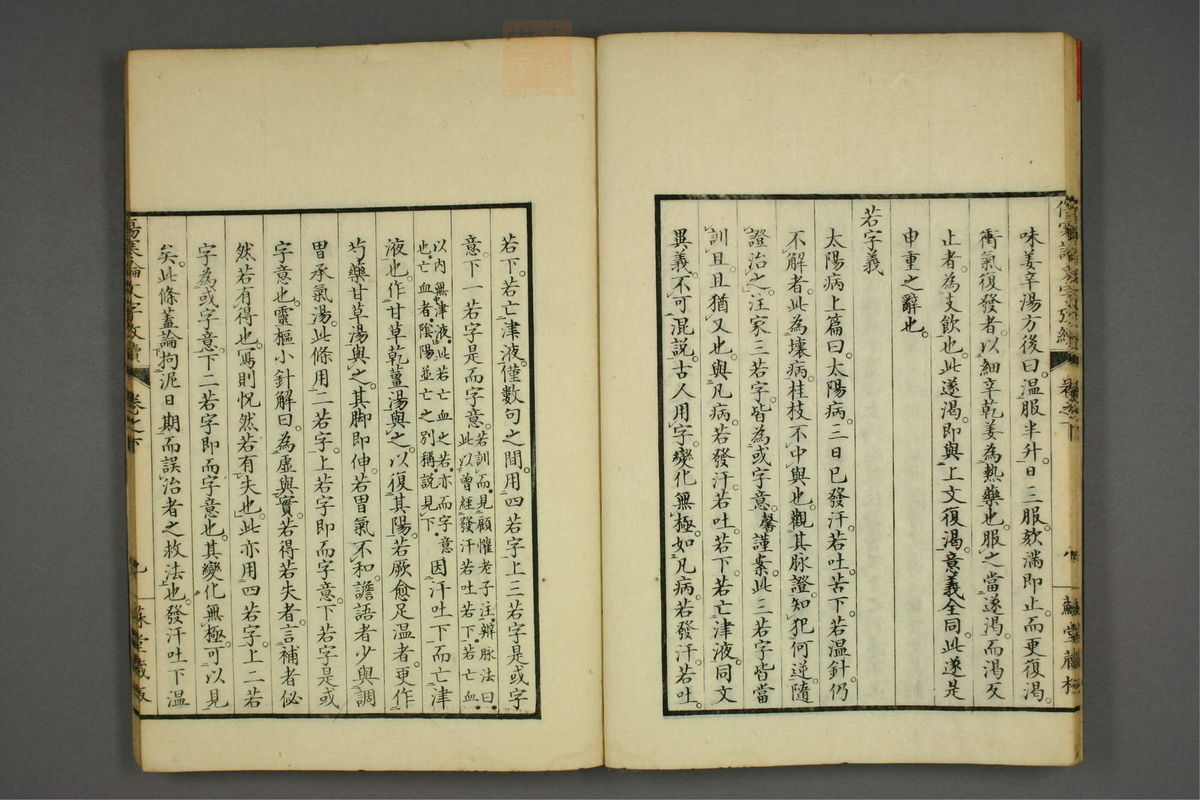 味姜辛湯方後曰。温服半升日三服。欬滿即止。而更復渴。
衝氣復發者。以細辛乾姜為熱藥也。服之當遂渴。而渴反
止者。為支飲也。此遂渴。即與上文復渴。意義全同。此遂是
申重之辭也。
若字義
太陽病上篇曰。太陽病。三日已發汗。若吐苦下。若温針。仍
不解者。此為壞病。桂枝不中與也。觀其脉證。知犯何逆。隨
證治之。注家三若字。皆為或字意。馨謹案。此三若字。皆當
訓且。且猶又也。與凡病。若發汗若吐。若下。若亡津液。同文
異義。不可混説。古人用字。變化無極。如凡病若發汗。若吐。
若下。若亡津液。僅數句之間。用四若字。上三若字。是或字
意。下一若字。是而字意。若訓而。見顧懽老子注。辨脉法曰。
此以曾經發汗若吐若下。若亡血。
以内無津液。此若亡血之若。亦而字意
也。亡血者。陰陽並亡之別稱。説見下。因汗吐下而亡津
液也。作甘草乾薑湯與之。以復其陽。若厥愈足温者。更作
芍藥甘草湯與之。其脚即伸。若胃氣不和。譫語者。少與調
胃承氣湯。此條用二若字。上若字。即而字意。下若字。是或
字意也。靈樞小針解曰。為虛與實。若得若失者。言補者佖
然若有得也。寫則怳然若有失也。此亦用四若字。上二若
字為或字意。下二若字。即而字意也。其變化無極。可以見
矣。此條蓋論拘泥日期。而誤治者之救法也。發汗吐下温
傷寒論文字攷續
卷之下
九